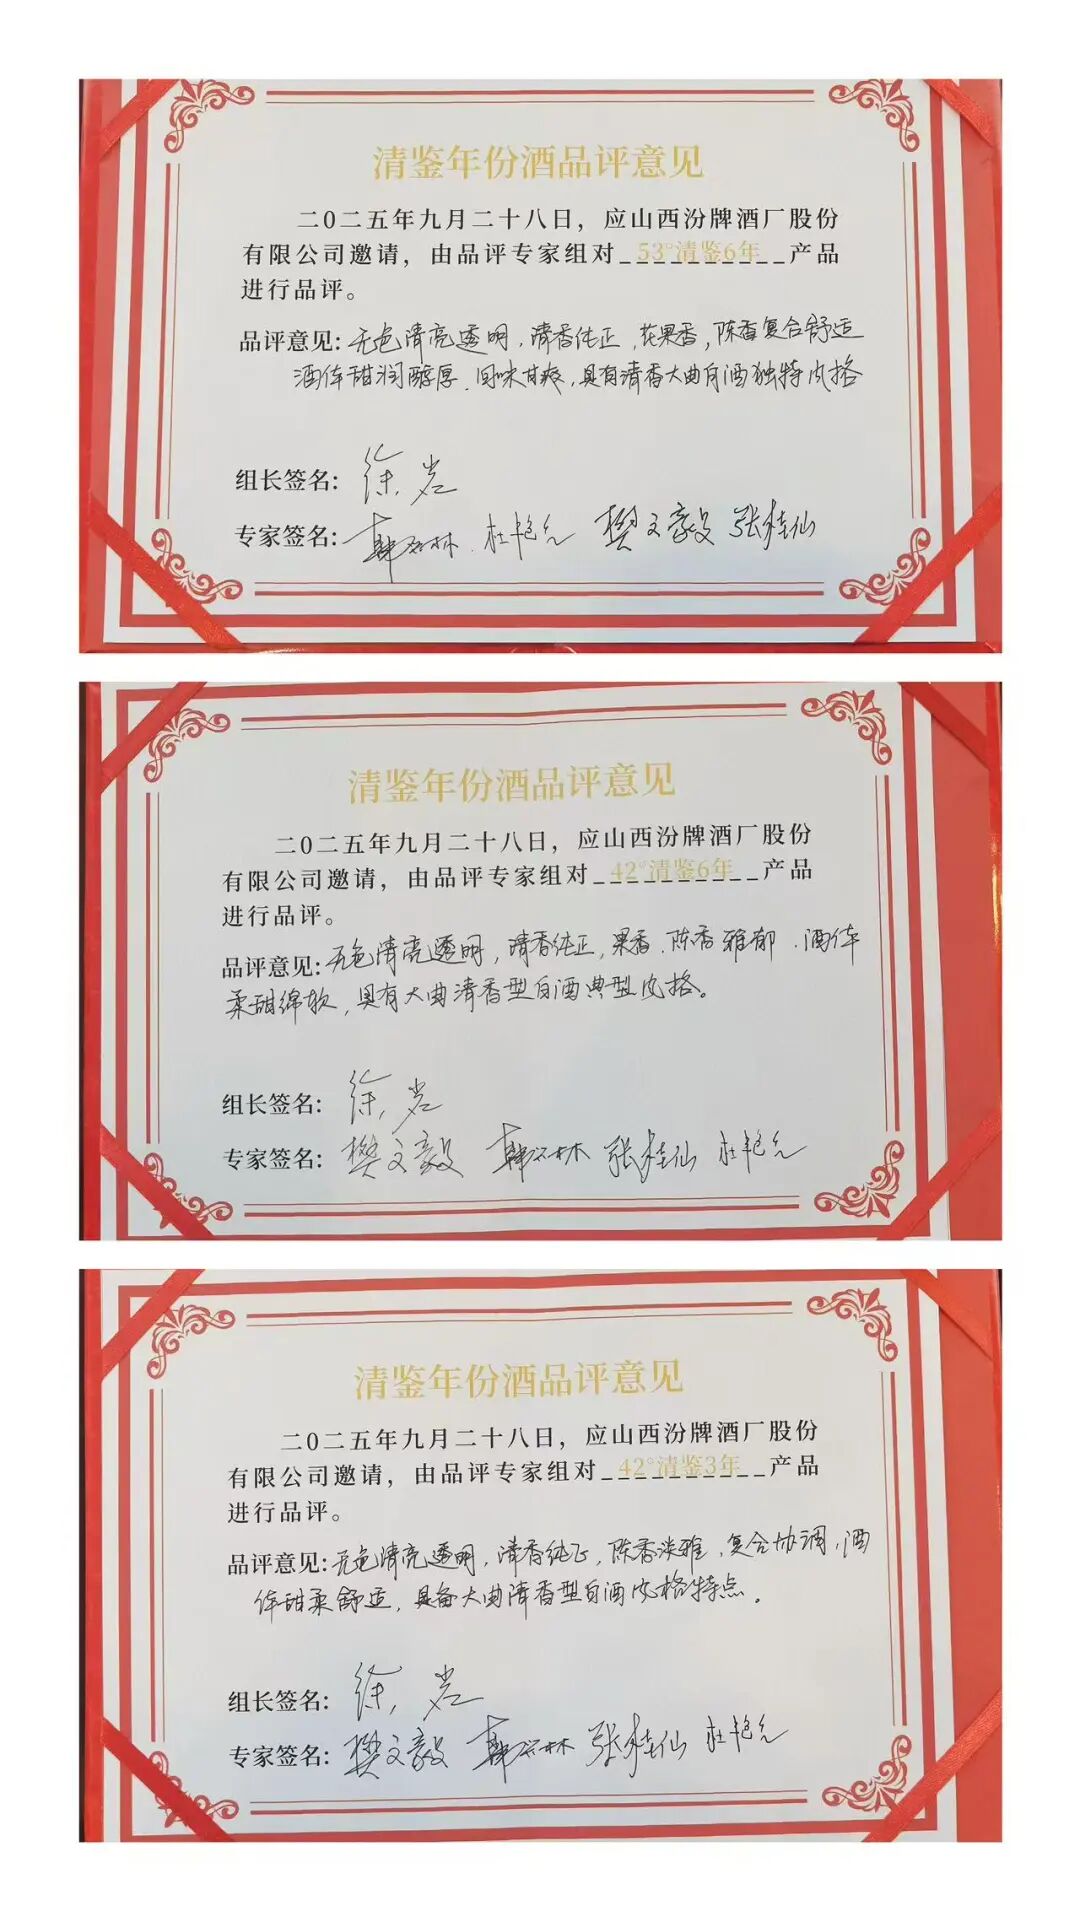 清鉴年份酒品评意见
二〇二五年九月二十八日，应山西汾牌酒厂股份
有限公司邀请，由品评专家组对 53°清鉴6年 产品
进行品评。
品评意见：无色清亮透明，清香纯正，花果香，陈香复合舒适
酒体甜润醇厚、回味甘爽，具有清香大曲白酒独特风格
组长签名： 徐岩
专家签名： 杜艳 樊文毅 张桂仙
清鉴年份酒品评意见
二〇二五年九月二十八日，应山西汾牌酒厂股份
有限公司邀请，由品评专家组对 42°清鉴6年 产品
进行品评。
品评意见：无色清亮透明，清香纯正，果香、陈香雅郁、酒体
柔甜绵软，具有大曲清香型白酒典型风格。
组长签名： 徐岩
专家签名： 樊文毅 张桂仙 杜艳
清鉴年份酒品评意见
二〇二五年九月二十八日，应山西汾牌酒厂股份
有限公司邀请，由品评专家组对 42°清鉴3年 产品
进行品评。
品评意见：无色清亮透明，清香纯正，陈香淡雅，复合协调，酒
体甜柔舒适，具备大曲清香型白酒风格特点。
组长签名： 徐岩
专家签名： 樊文毅 张桂仙 杜艳